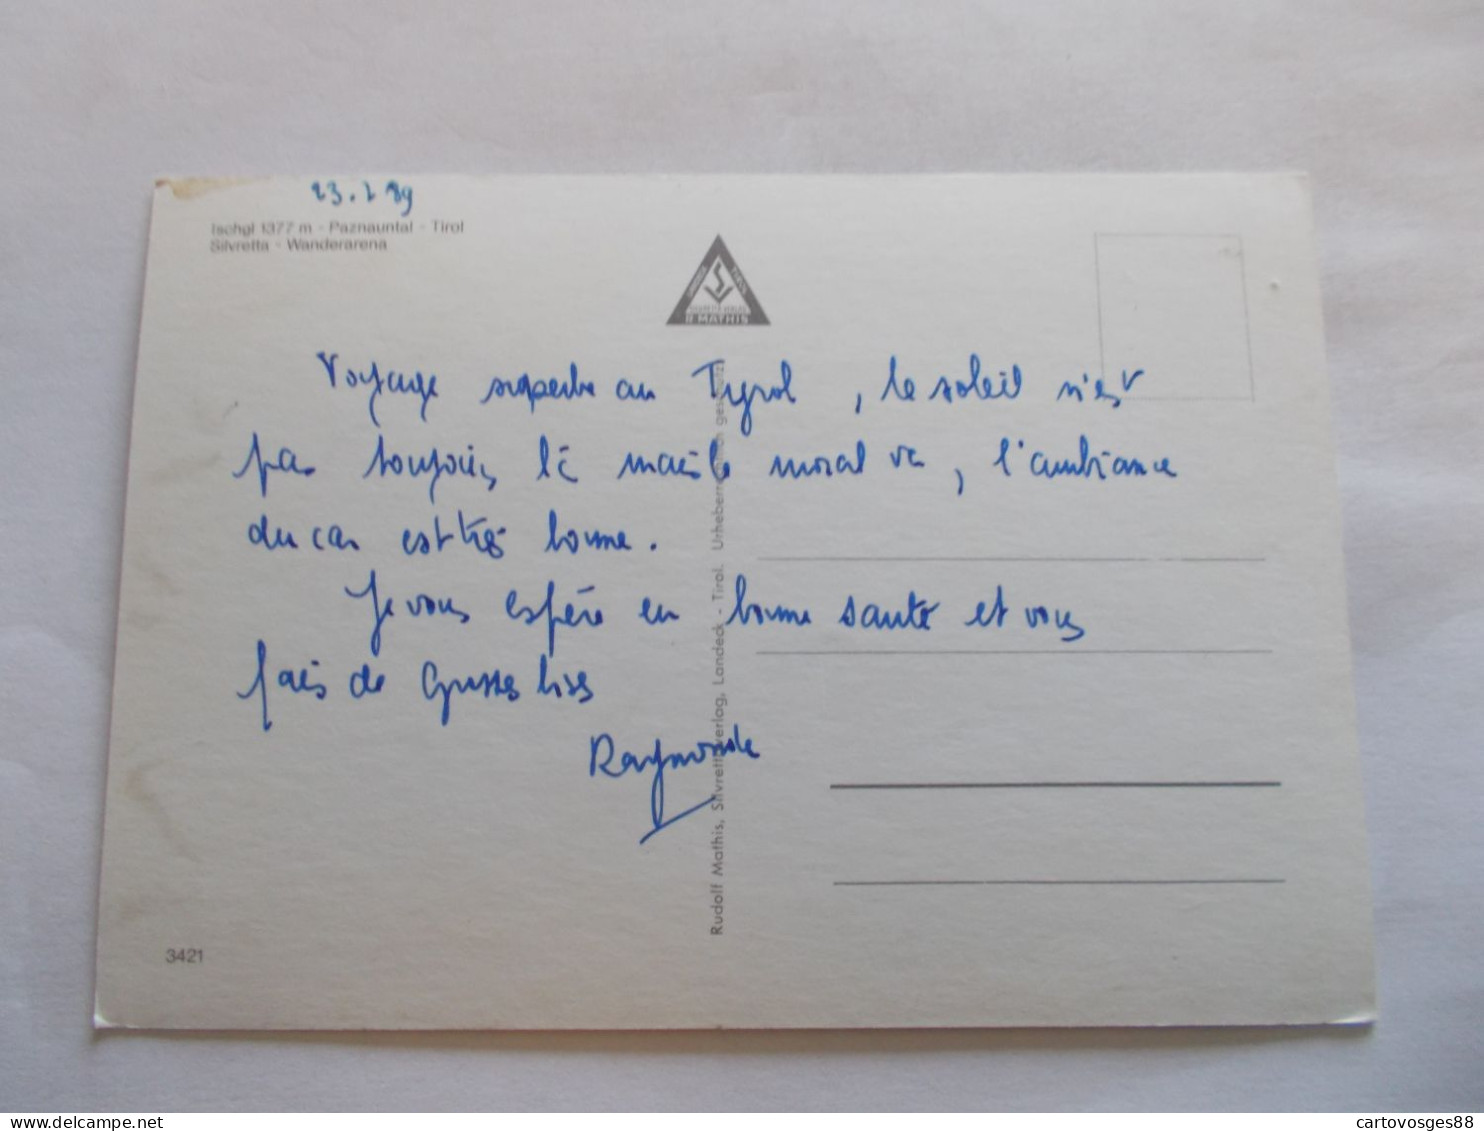 23.7 89
Ischgl 1377 m - Paznauntal - Tirol
Silvretta - Wanderarena
R. MATHIS
Voyage superbe au Tyrol, le soleil n'est
pas toujours là mais le moral va, l'ambiance
du car est très bonne.
Je vous espère en bonne santé et vous
fais de grosses bises
Raymonde
Rudolf Mathis, Silvretta-Verlag, Landeck - Tirol. Urheberrechtlich geschützt
3421
delcampe.net
cartovosges88